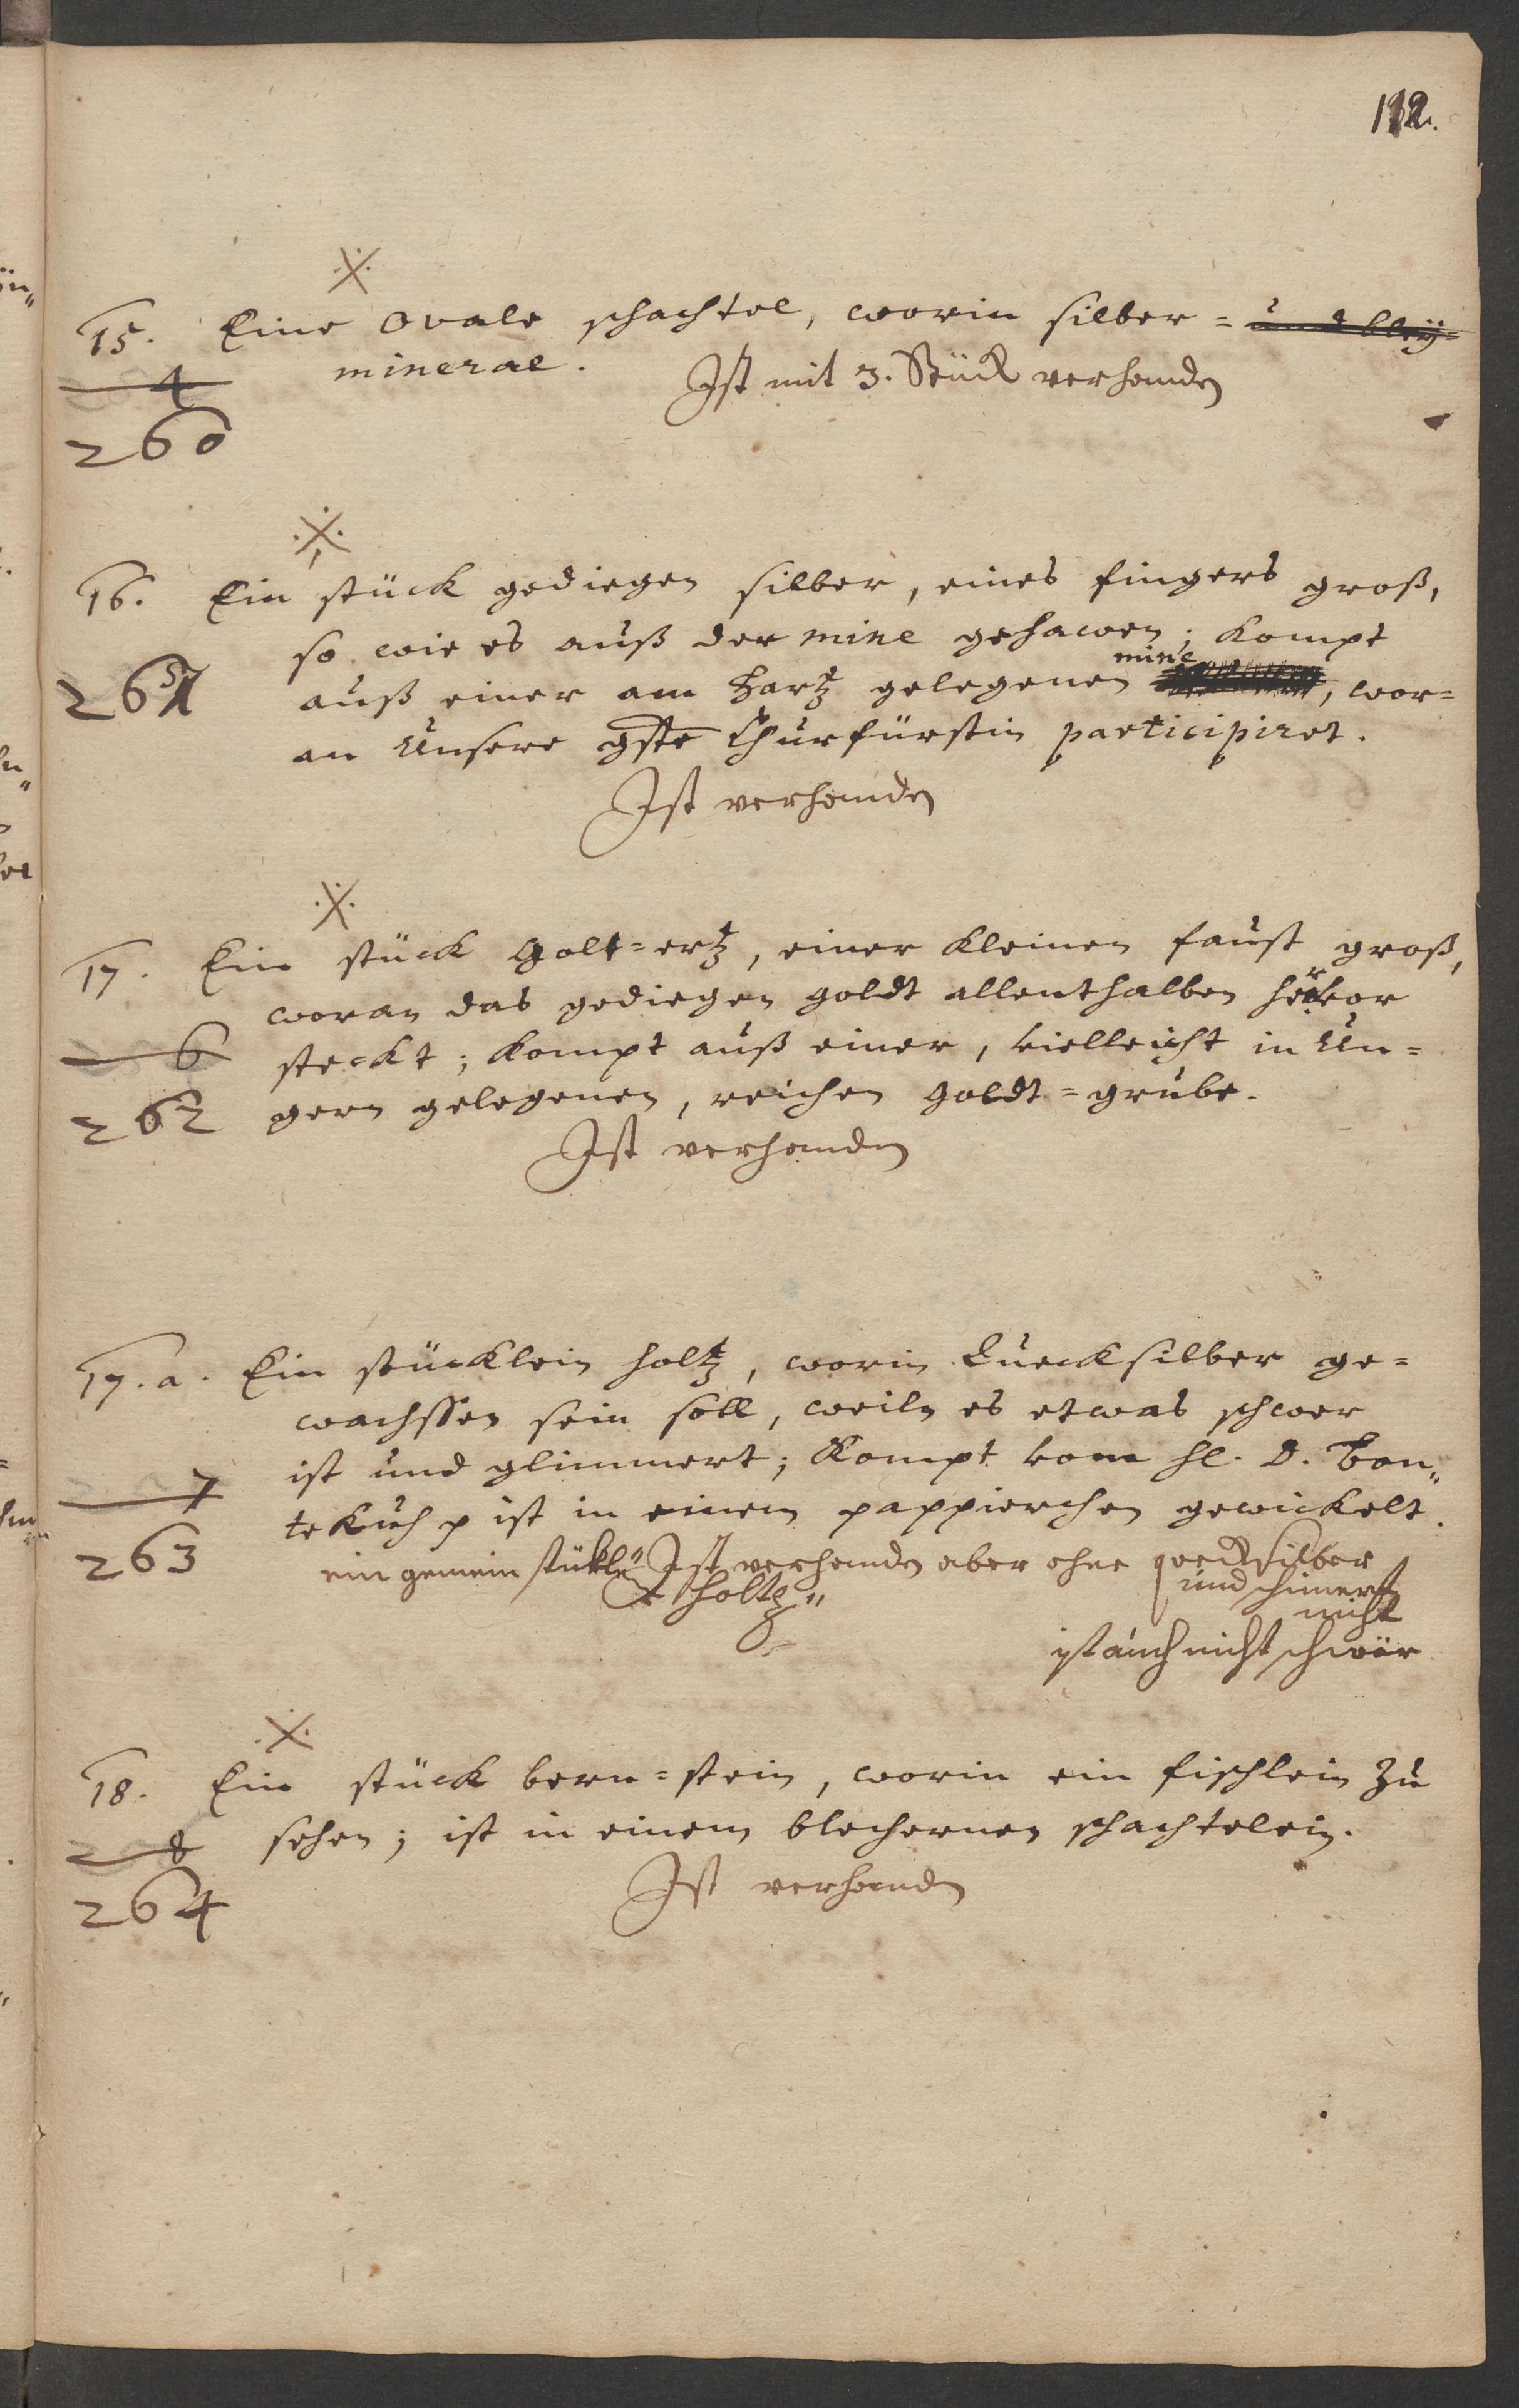 112.
15. Eine Ovale schachtel, worin silber= und bleÿ=
minerae.
Ist mit 3. Stück verhanden
4
260
16. Ein stück gediegen silber, eines fingers groß,
so wie es auß der mine gehawen; kompt
auß einer am Hartz gelegenen mine, wor=
261
an Unsere gste Churfürstin participiret.
Ist verhanden
17. Ein stück Golt=ertz, einer kleinen faust groß,
woran das gediegen goldt allenthalben hervor
steckt; kompt auß einer, vielleicht in Un=
6
262
gern gelegenen, reichen Goldt=grube.
Ist verhanden
17.a. Ein stücklein holtz, worin Quecksilber ge=
wachssen sein soll, weiln es etwas schwer
ist und glimmert; Kompt vom hl. D. Bon„
7
tekuh p ist in einem pappierchen gewickelt.
263
ein gemein stükl„ Ist verhanden aber ohne quecksilber
holtz„
und schimert
nicht
ist auch nicht schwär
18. Ein stück bern=stein, worin ein fischlein zu
sehen; ist in einem blechernen schachtelein.
8
Ist verhanden
264